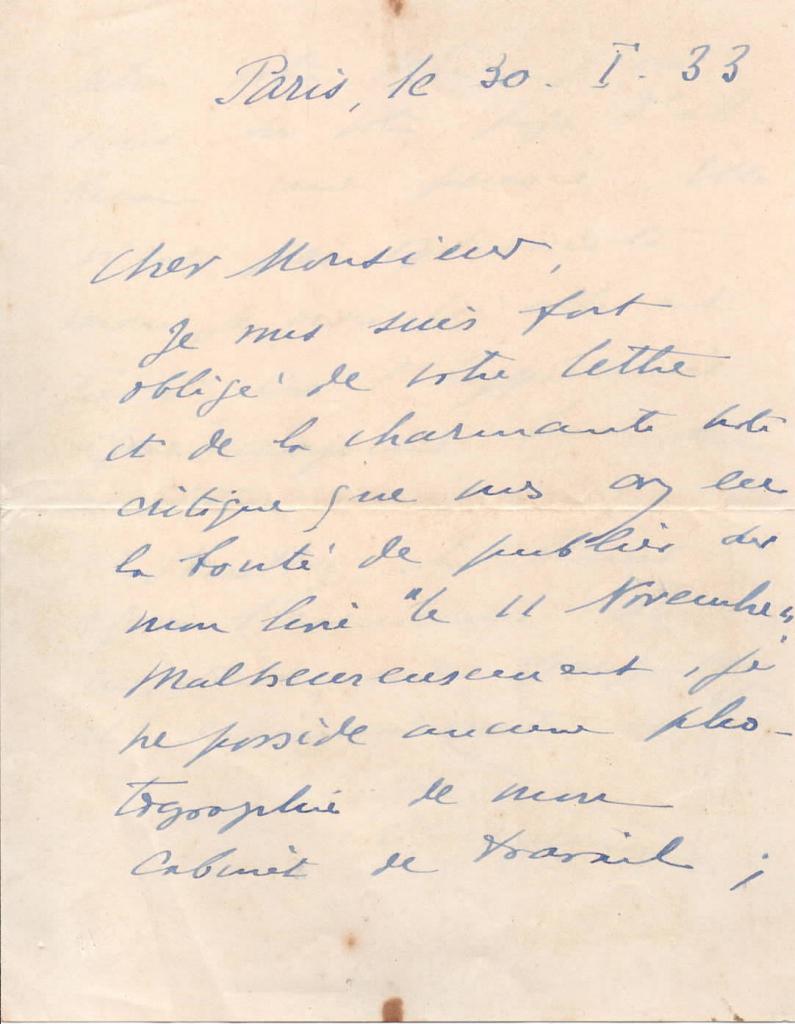 Paris, le 30. I. 33
Cher Monsieur,
Je vous suis fort
obligé de votre lettre
et de la charmante note
critique que vous avez eu
la bonté de publier sur
mon livre "le 11 Novembre"
Malheureusement, je
ne possède aucune pho-
tographie de mon
cabinet de travail ;